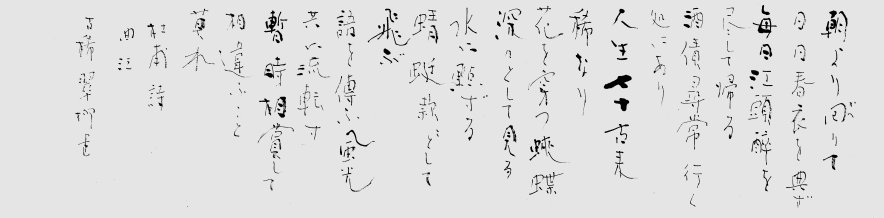 朝より回りて
日日春衣を典ず
毎日江頭酔を
尽して帰る
酒債尋常行く
処にあり
人生七十古来
稀なり
花を穿つ蛺蝶
深々として見る
水に點ずる
蜻蜓款々として
飛ぶ
語を傳ふ風光
共に流転す
暫時相賞して
相違ふこと
莫れ
杜甫詩
曲江